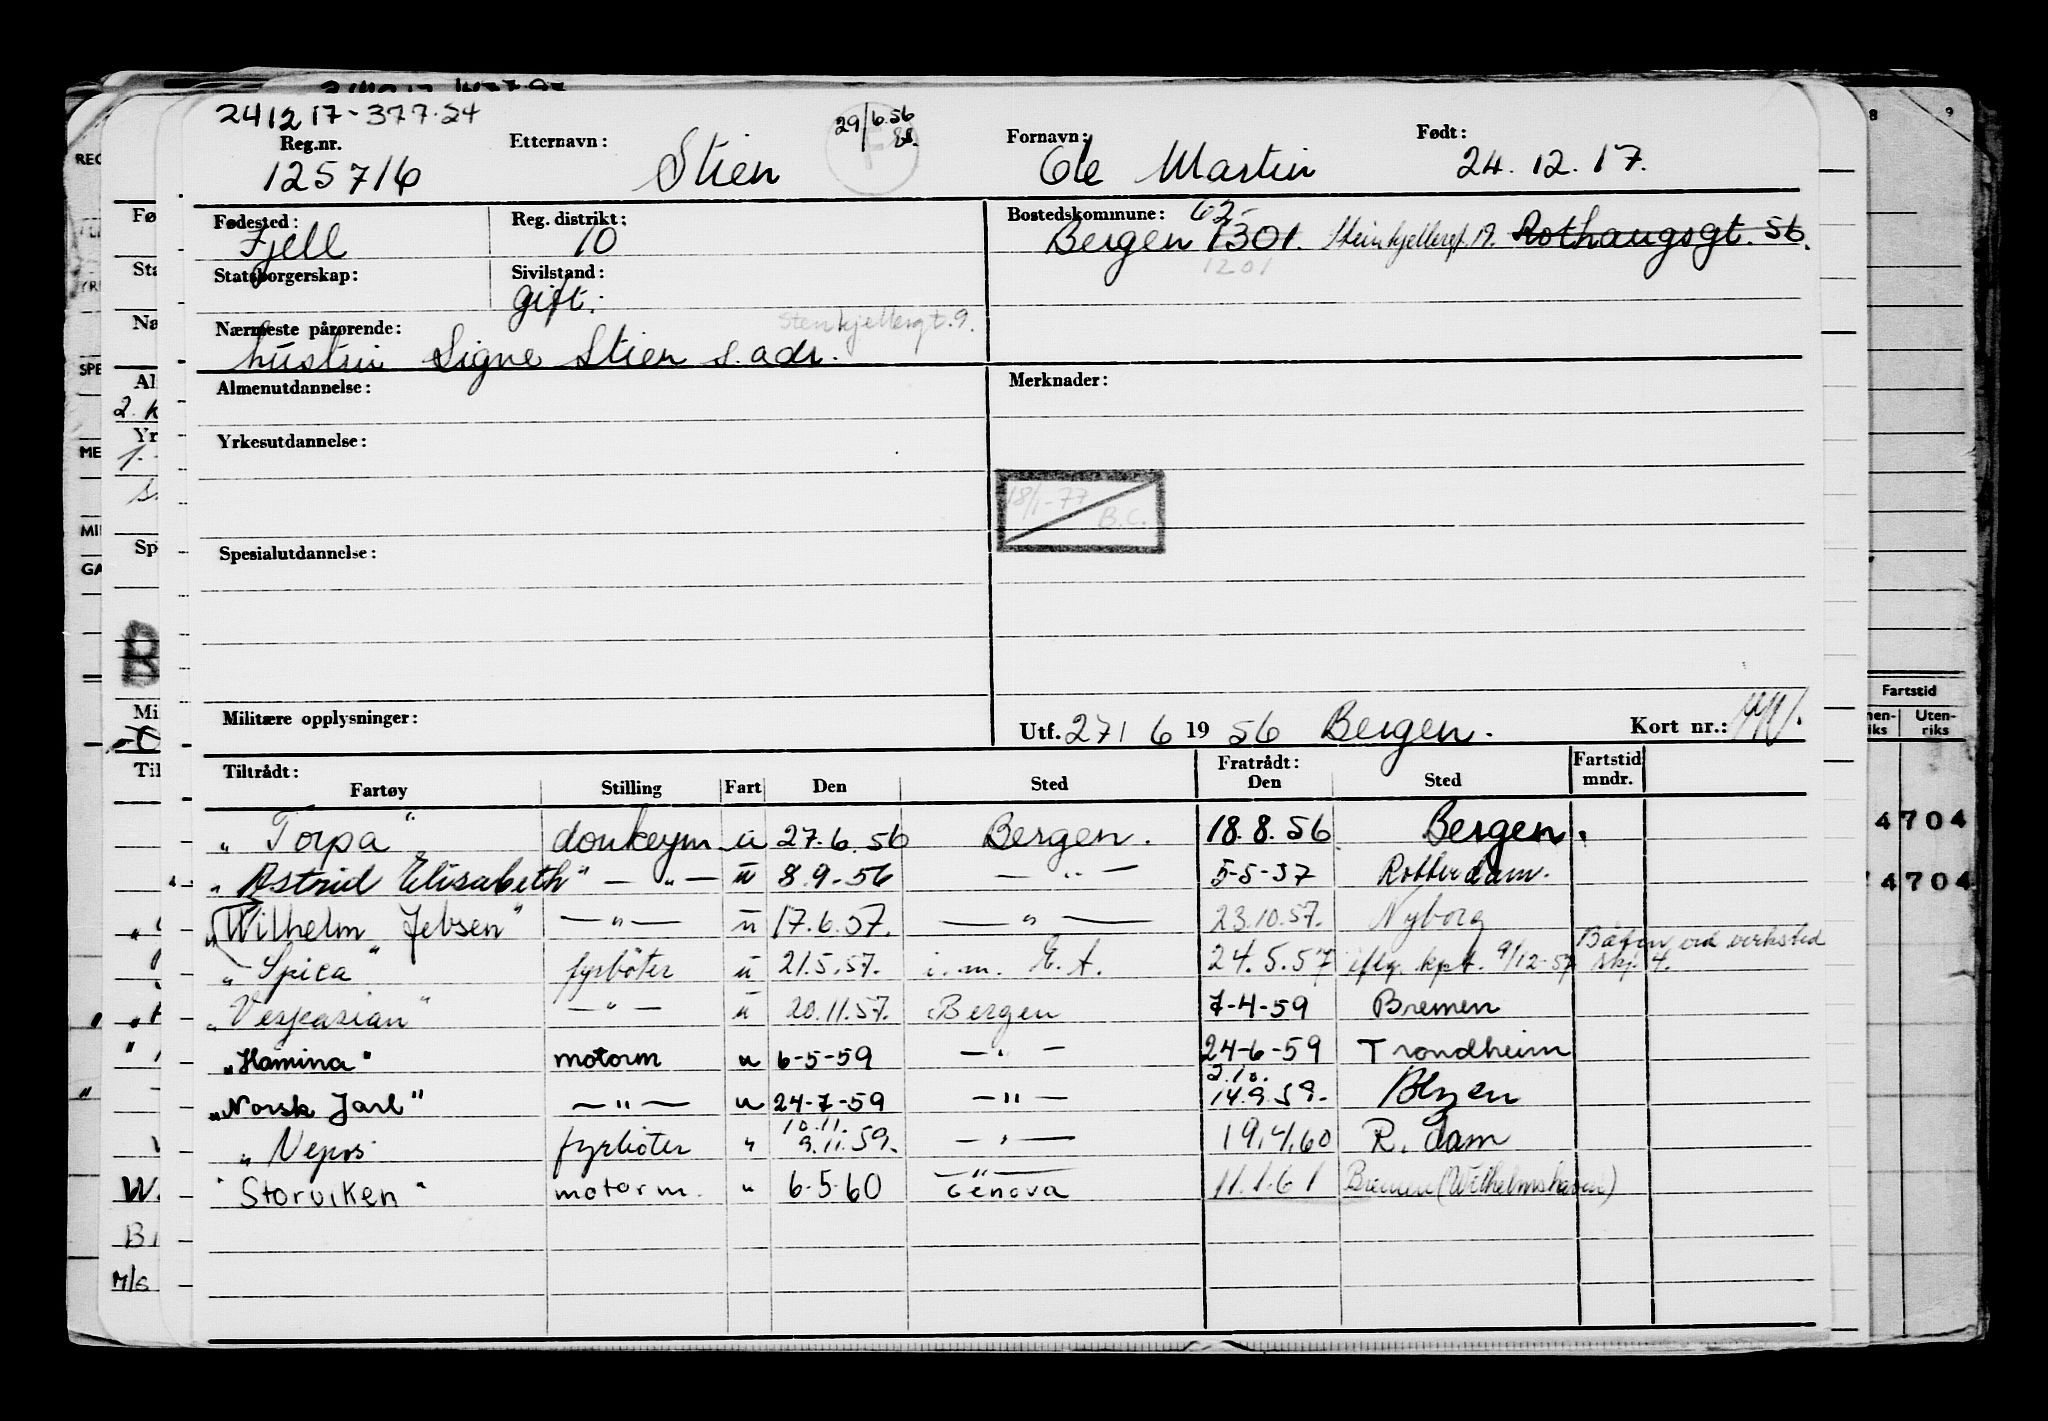 241217-377.24
29/6.56
Reg.nr. Etternavn: Fornavn: Født:
125716 Stien Ole Martin 24.12.17.
Fødested: Reg. distrikt: Bostedskommune: 62-
Fjell 10 Bergen 1301. Steinkjellergt. 19. Rothaugsgt. 56.
1201
Statsborgerskap: Sivilstand:
gift.
Nærmeste pårørende: Steinkjellergt. 9.
hustru Signe Stien s. adr.
Almenutdannelse: Merknader:
Yrkesutdannelse:
18/1-77
B.C.
Spesialutdannelse:
Militære opplysninger: Utf. 27/ 6 19 56 Bergen. Kort nr.:
Tiltrådt: Fratrådt: Fartstid
Fartøy Stilling Fart Den Sted Den Sted mndr.
„ Torpa “ donkeym. u 27.6.56 Bergen. 18.8.56 Bergen.
„ Astrid Elisabeth “ — „ — u 8.9-56 — „ — 5-5-57 Rotterdam.
„ Wilhelm Jebsen “ — „ — u 17.6.57. — „ — 23.10.57. Nyborg
„ Spica “ fyrbøter u 21.5.57. i. m. E. A. 24.5.57 iflg. kpt. 9/12-57 Båten ved verksted skj. 4.
„ Vespasian “ — „ — u 20.11.57. Bergen 7-4-59 Bremen
„ Hamina “ motorm u 6-5-59 — „ — 24-6-59 Trondheim
„ Norsk Jarl “ — „ — u 24-7-59 — „ — 2.10. 14.9.59. Bergen
„ Nepos fyrbøter „ 10.11. 9.11.59. — „ — 19.4.60 R.dam
„ Storviken “ motorm. „ 6.5.60 — „ — Genova 11.1.61 Bremen (Wilhelmshaven)
Fartstid
Uten-
riks
4704
4704